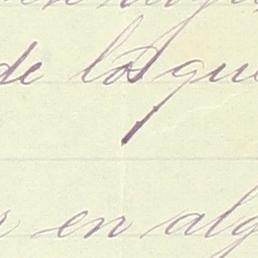 de los que
en alg